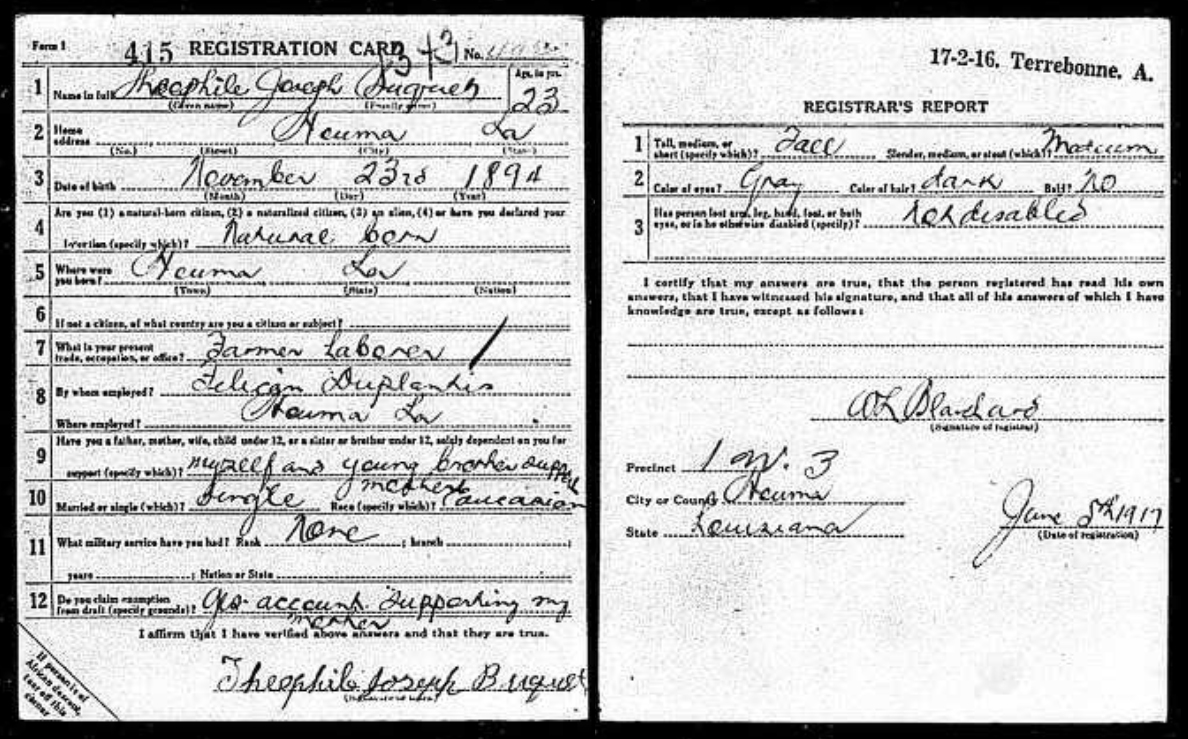 Form 1 415 REGISTRATION CARD 343 No.
1 Name in full Theophile Joseph Buquet Age, in yrs. 23
(Given name) (Family name)
2 Home address Houma La
(No.) (Street) (City) (State)
3 Date of birth November 23rd 1894
(Month) (Day) (Year)
4 Are you (1) a natural-born citizen, (2) a naturalized citizen, (3) an alien, (4) or have you declared your
intention (specify which)? Natural born
5 Where were you born? Houma La
(Town) (State) (Nation)
6 If not a citizen, of what country are you a citizen or subject?
7 What is your present trade, occupation, or office? Farmer Laborer
8 By whom employed? Felician Duplantis
Where employed? Houma La
9 Have you a father, mother, wife, child under 12, or a sister or brother under 12, solely dependent on you for
support (specify which)? myself and young brother support
mother
10 Married or single (which)? Single Race (specify which)? Caucasion
11 What military service have you had? Rank None ; branch ;
years ; Nation or State
12 Do you claim exemption from draft (specify grounds)? Yes account supporting my
mother
I affirm that I have verified above answers and that they are true.
Theophile Joseph Buquet
If person is of
African descent,
tear off this
corner
17-2-16. Terrebonne. A.
REGISTRAR'S REPORT
1 Tall, medium, or short (specify which)? Tall Slender, medium, or stout (which)? Medium
2 Color of eyes? Gray Color of hair? dark Bald? No
3 Has person lost arm, leg, hand, foot, or both eyes, or is he otherwise disabled (specify)? Not disabled
I certify that my answers are true, that the person registered has read his own
answers, that I have witnessed his signature, and that all of his answers of which I have
knowledge are true, except as follows:
AL Blanchard
(Signature of registrar)
Precinct 1 W. 3
City or County Houma
State Louisiana
June 5th 1917
(Date of registration)